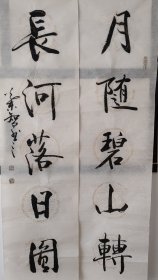 月随碧山轉
長河落日圓